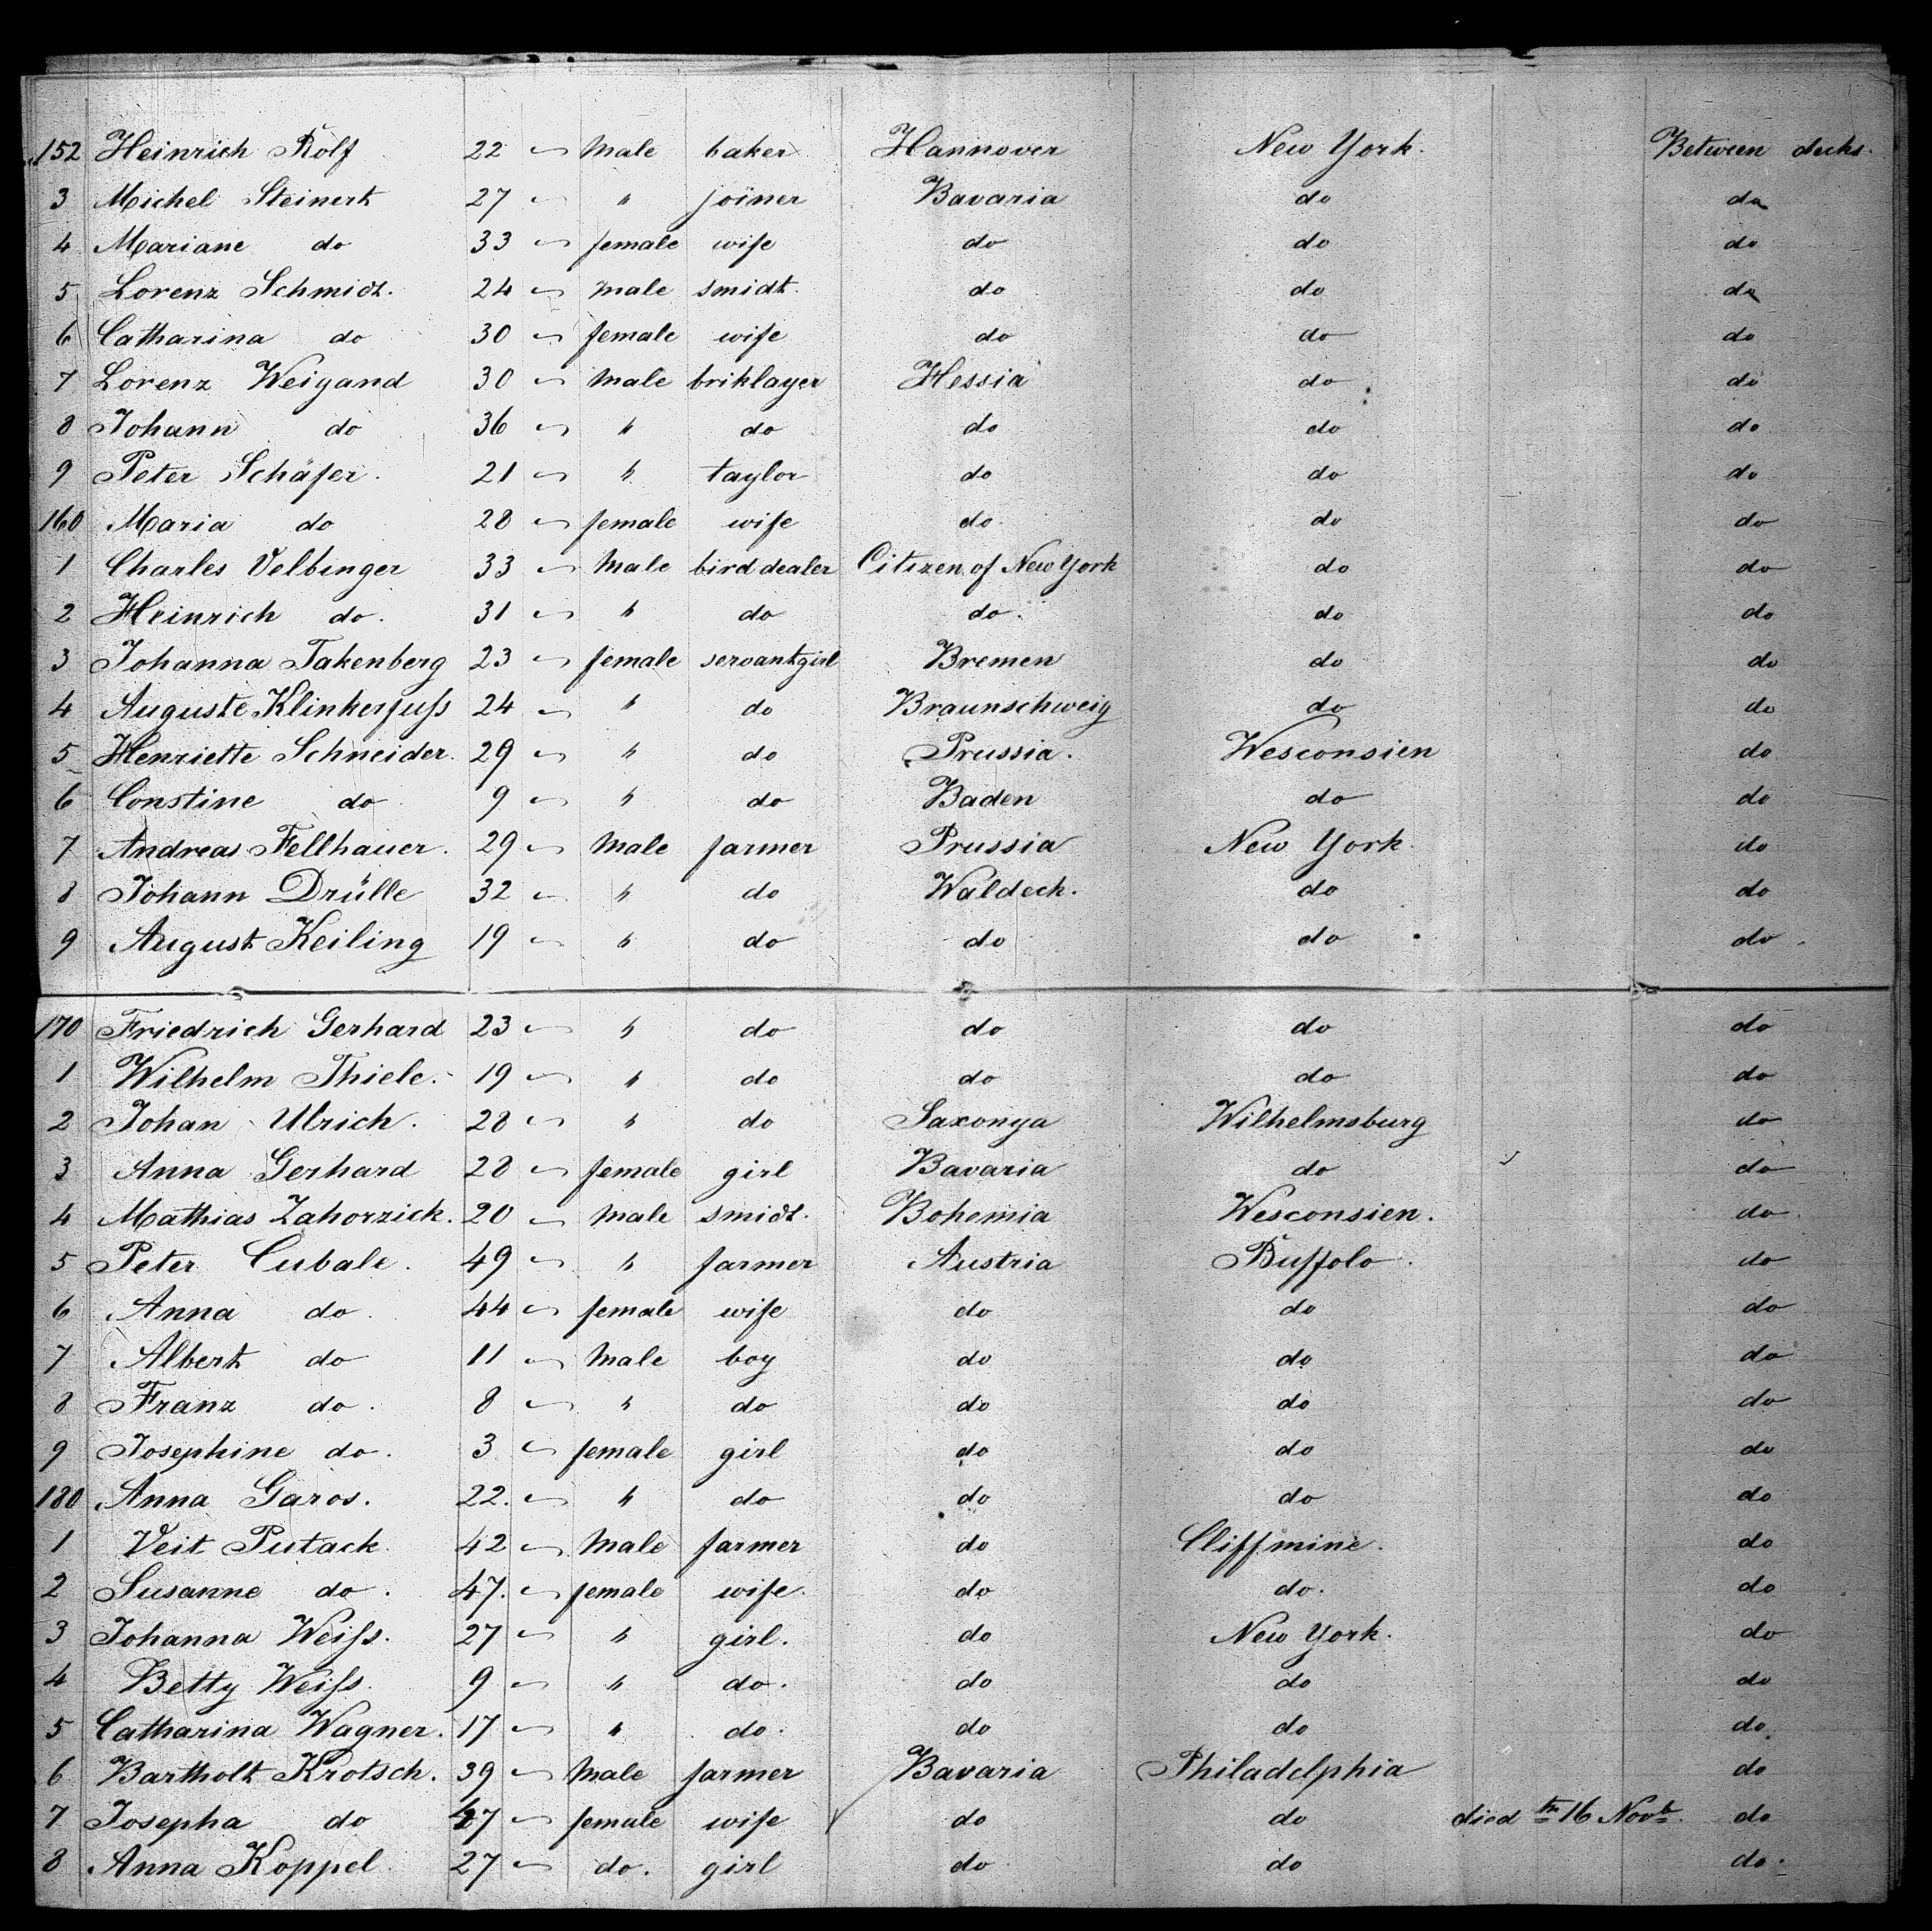 152 Heinrich Rolf 22 male baker Hannover New York. Between decks.
3 Michel Steinert 27 " joiner Bavaria do do
4 Mariane do 33 female wife do do do
5 Lorenz Schmidt. 24 male smidt. do do do
6 Catharina do 30 female wife do do do
7 Lorenz Weigand 30 male briklayer Hessia do do
8 Johann do 36 " do do do do
9 Peter Schäfer. 21 " taylor do do do
160 Maria do 28 female wife do. do do
1 Charles Velbinger 33 male bird dealer Citizen of New York do do
2 Heinrich do. 31 " do do. do do
3 Johanna Takenberg 23 female servantgirl Bremen do do
4 Auguste Klinkerfuſs 24 " do Braunschweig do do
5 Henriette Schneider. 29 " do Prussia. Wesconsien do
6 Constine do 9 " do Baden do do
7 Andreas Fellhauer. 29 male farmer Prussia New York. do
8 Johann Drülle 32 " do Waldeck. do do
9 August Keiling 19 " do do do do
170 Friedrich Gerhard 23 " do do do do
1 Wilhelm Thiele. 19 " do do do do
2 Johan Ulrich. 28 " do Saxonya Wilhelmsburg do
3 Anna Gerhard 28 female girl Bavaria do do
4 Mathias Zahorzick. 20 male smidt. Bohemia Wesconsien. do
5 Peter Cubale. 49 " farmer Austria Buffolo. do
6 Anna do. 44 female wife do do do
7 Albert do 11 male boy do do do
8 Franz do. 8 " do do do do
9 Josephine do. 3 female girl do do do
180 Anna Garos. 22. " do do do do
1 Veit Putack. 42 male farmer do Cliffmine. do
2 Susanne do. 47. female wife. do do. do
3 Johanna Weiſs. 27 " girl. do New York. do
4 Betty Weiſs. 9 " do. do do do
5 Catharina Wagner. 17 " do. do do do
6 Bartholt Krotsch. 39 male farmer Bavaria Philadelphia do
7 Josepha do 27 female wife do do died th 16 Novb. do
8 Anna Koppel 27 do. girl do do do.